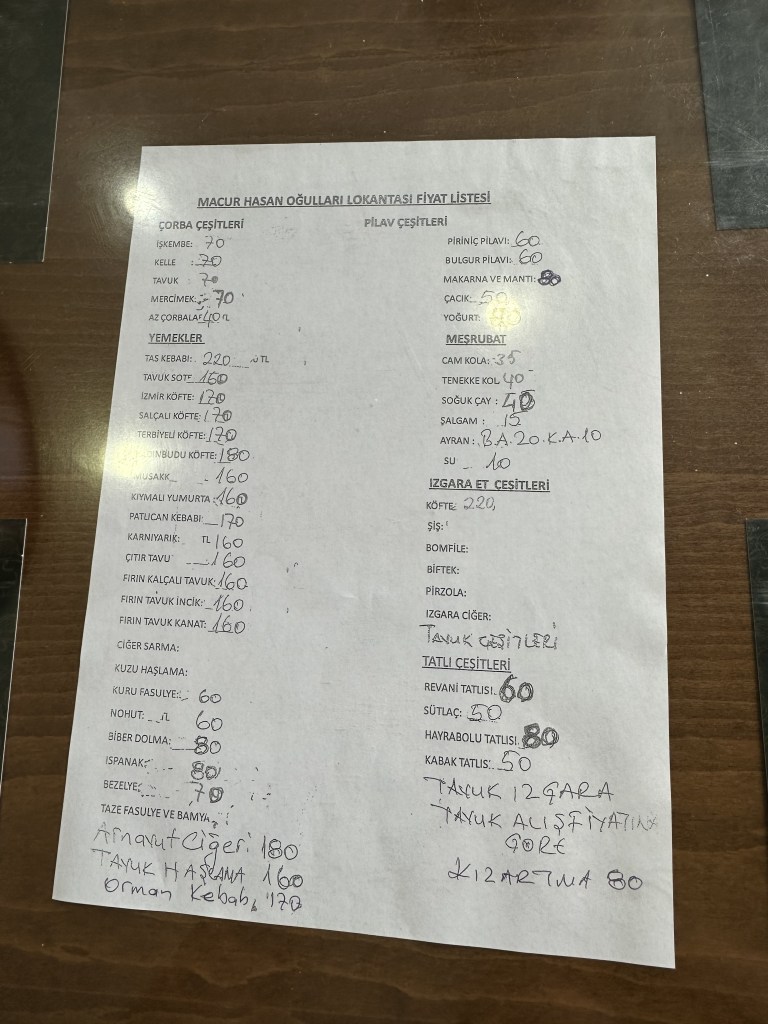 MACUR HASAN OĞULLARI LOKANTASI FİYAT LİSTESİ
ÇORBA ÇEŞİTLERİ
İŞKEMBE: 70
KELLE : 70
TAVUK : 70
MERCİMEK: 70
AZ ÇORBALAR 40 TL
YEMEKLER
TAS KEBABI: 220 TL
TAVUK SOTE 160
İZMİR KÖFTE: 170
SALÇALI KÖFTE: 170
TERBİYELİ KÖFTE: 170
DINBUDU KÖFTE: 180
MUSAKK 160
KIYMALI YUMURTA : 160
PATLICAN KEBABI 170
KARNIYARIK: TL 160
ÇITIR TAVU 160
FIRIN KALÇALI TAVUK: 160
FIRIN TAVUK İNCİK: 160
FIRIN TAVUK KANAT: 160
CİĞER SARMA:
KUZU HAŞLAMA:
KURU FASULYE: 60
NOHUT: TL 60
BİBER DOLMA: 80
ISPANAK: 80
BEZELYE: 70
TAZE FASULYE VE BAMYA
Arnavut Ciğeri 180
TAVUK HAŞLAMA 160
Orman Kebab, 170
PİLAV ÇEŞİTLERİ
PİRİNİÇ PİLAVI: 60
BULGUR PİLAVI: 60
MAKARNA VE MANTI: 80
ÇACIK: 50
YOĞURT:
MEŞRUBAT
CAM KOLA: 35
TENEKKE KOL 40
SOĞUK ÇAY : 40
ŞALGAM : 15
AYRAN : B.A.20.K.A.10
SU 10
IZGARA ET ÇEŞİTLERİ
KÖFTE: 220,
ŞİŞ:
BOMFİLE:
BİFTEK:
PİRZOLA:
IZGARA CİĞER:
TAVUK ÇEŞİTLERİ
TATLI ÇEŞİTLERİ
REVANİ TATLISI. 60
SÜTLAÇ: 50
HAYRABOLU TATLISI. 80
KABAK TATLIS: 50
TAVUK IZGARA
TAVUK ALIŞ FİYATINA
GÖRE
KIZARTMA 80